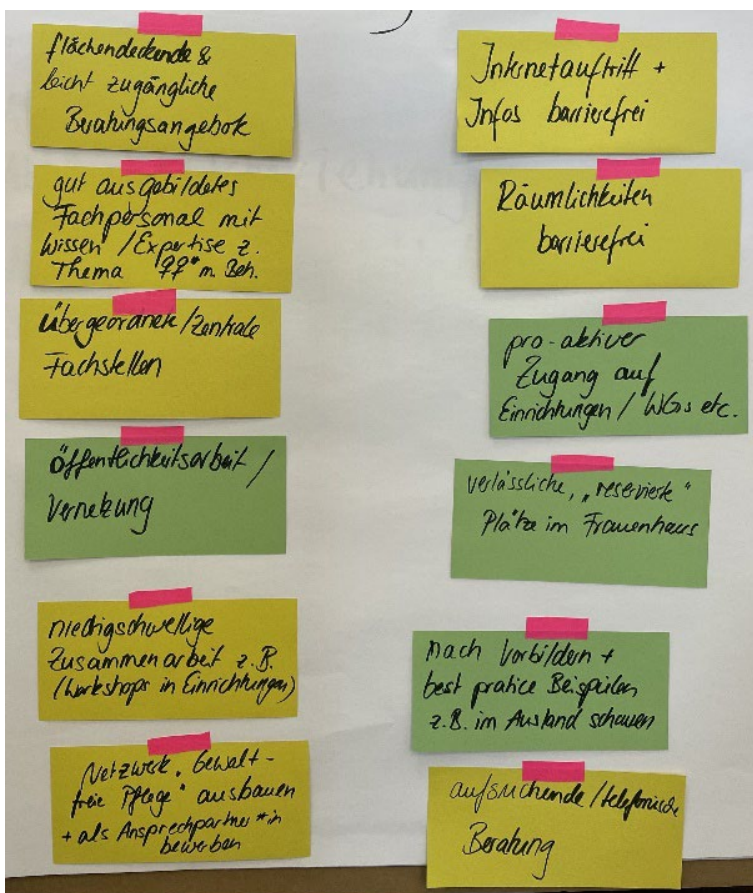 flächendeckende &
leicht zugängliche
Beratungsangebote
gut ausgebildetes
Fachpersonal mit
Wissen / Expertise z.
Thema ♀♀* m. Beh.
Übergeordnete / Zentrale
Fachstellen
öffentlichkeitsarbeit /
Vernetzung
niedrigschwellige
Zusammenarbeit z.B.
(Workshops in Einrichtungen)
Netzwerk „Gewalt-
freie Pflege" ausbauen
+ als Ansprechpartner*in
bewerben
Internetauftritt +
Infos barrierefrei
Räumlichkeiten
barrierefrei
pro-aktiver
Zugang auf
Einrichtungen / WGs etc.
verlässliche, „reservierte"
Plätze im Frauenhaus
nach Vorbildern +
best pratice Beispielen
z.B. im Ausland schauen
aufsuchende / telefonische
Beratung